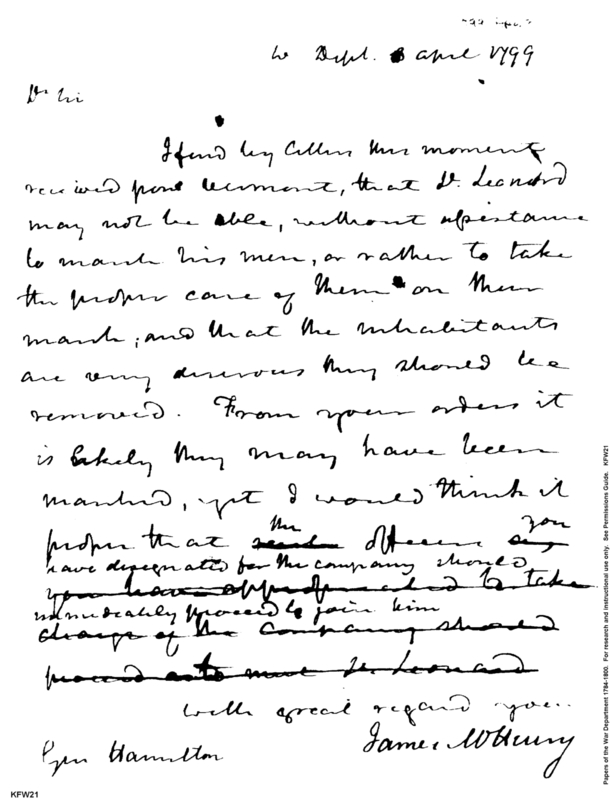 W Dept. 8 april 1799
Dr Sir
I find by letters this moment
received from Vermont, that Lt. Leonard
may not be able, without assistance
to march his men, or rather to take
the proper care of them on their
march; and that the inhabitants
are very desirous they should be
removed. From your orders it
is likely they may have been
marched, yet I would think it
the you
proper that officer
have designated for the company should
you have appropriated to take
immediately proceed to join him
charge of the company should
proceed to meet Lt. Leonard
with great regard your..
Gen Hamilton James McHenry
KFW21
Papers of the War Department 1784-1800. For research and instructional use only. See Permissions Guide. KFW21